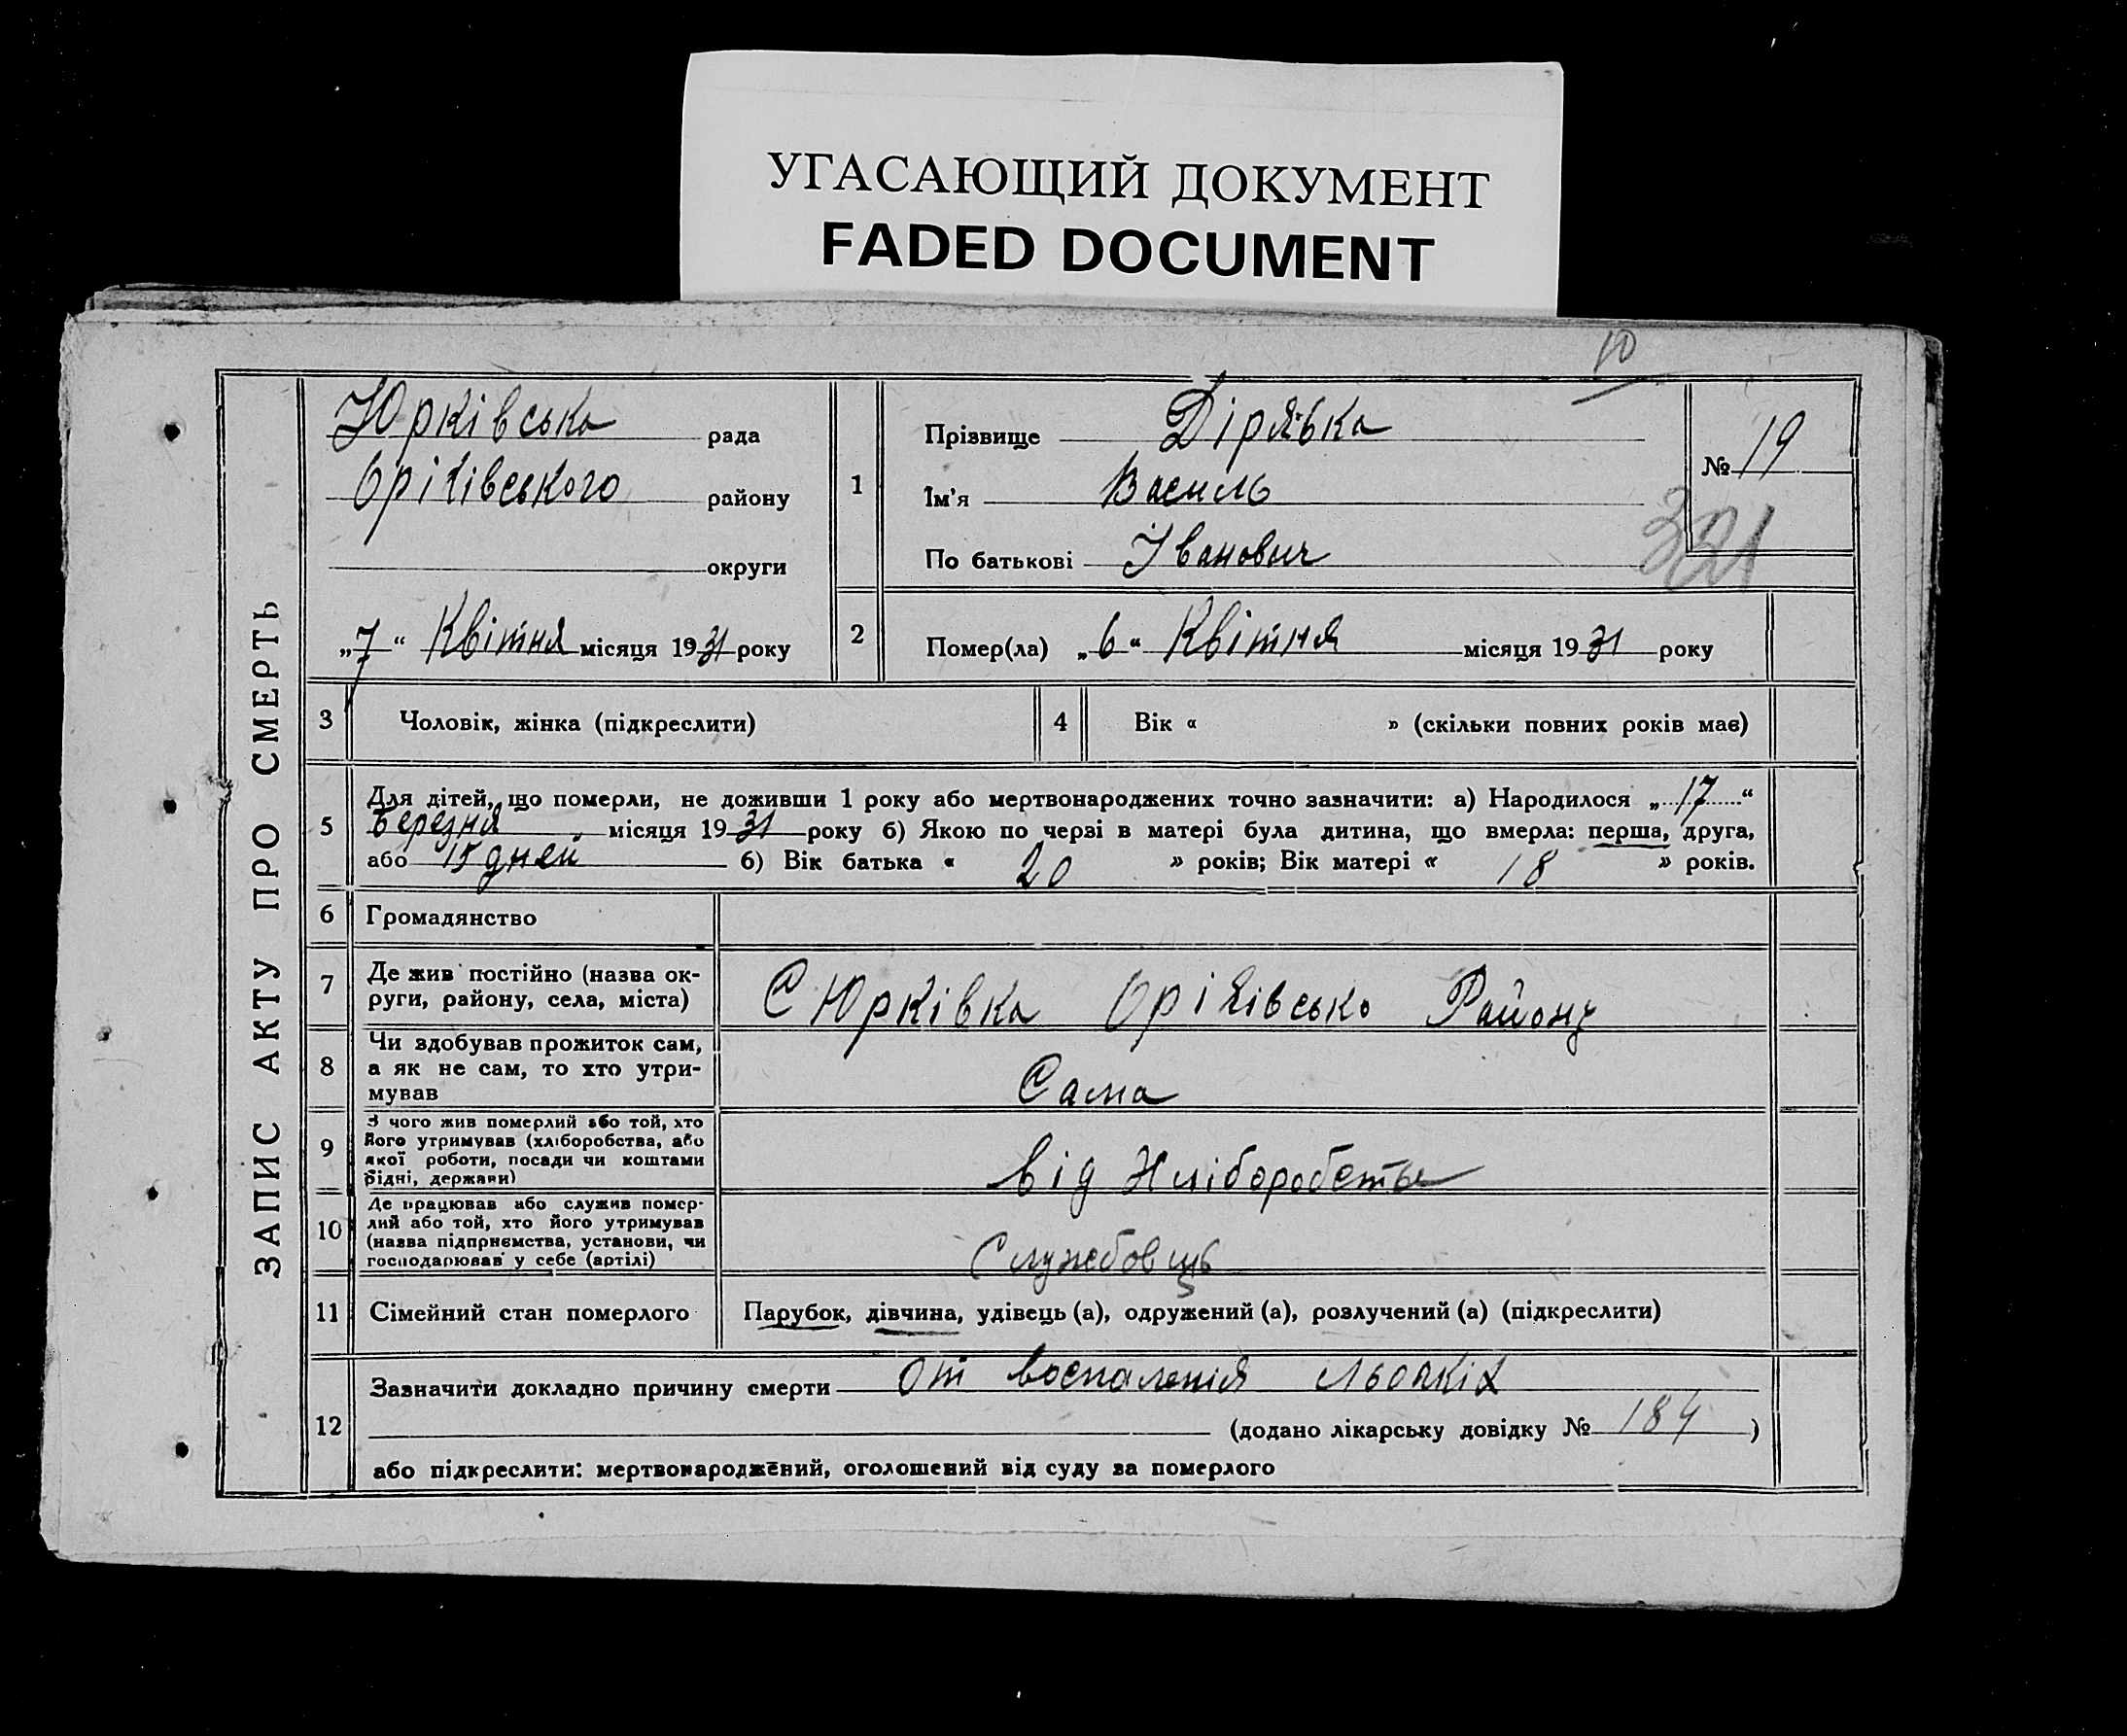 УГАСАЮЩИЙ ДОКУМЕНТ
FADED DOCUMENT
10
ЗАПИС АКТУ ПРО СМЕРТЬ
Юрківська рада
Оріхівського району
округи
„7“ Квітня місяця 1931 року
1
Прізвище Дірявка
Ім'я Василь
По батькові Іванович
№ 19
321
2
Помер(ла) „6“ Квітня місяця 1931 року
3 Чоловік, жінка (підкреслити)
4 Вік « » (скільки повних років має)
5
Для дітей, що померли, не доживши 1 року або мертвонароджених точно зазначити: а) Народилося „17“
Березня місяця 1931 року б) Якою по черзі в матері була дитина, що вмерла: перша, друга,
або 15 дней б) Вік батька « 20 » років; Вік матері « 18 » років.
6 Громадянство
7 Де жив постійно (назва ок-
руги, району, села, міста)
С Юрківка Оріхівсько Району
8 Чи здобував прожиток сам,
а як не сам, то хто утри-
мував
Сама
9 З чого жив померлий або той, хто
його утримував (хліборобства, або
якої роботи, посади чи коштами
рідні, держави)
від Хліборобства
10 Де працював або служив помер-
лий або той, хто його утримував
(назва підприємства, установи, чи
господарював у себе (артілі)
Службовць
11 Сімейний стан померлого Парубок, дівчина, удівець (а), одружений (а), розлучений (а) (підкреслити)
12
Зазначити докладно причину смерти От воспаленія льохкіх
(додано лікарську довідку № 184 )
або підкреслити: мертвонароджений, оголошений від суду за померлого